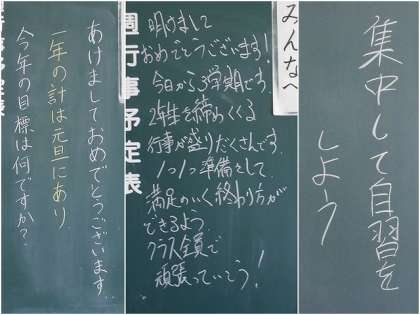 あけましておめでとうございます。
一年の計は元旦にあり
今年の目標は何ですか?
週行事予定表
みんなへ
明けまして
おめでとうございます!
今日から3学期です。
2年生を締めくくる
行事が盛りだくさんです。
1つ1つ準備をして、
満足のいく終わり方が
できるよう
クラス全員で
頑張っていこう!
集中して自習を
しよう